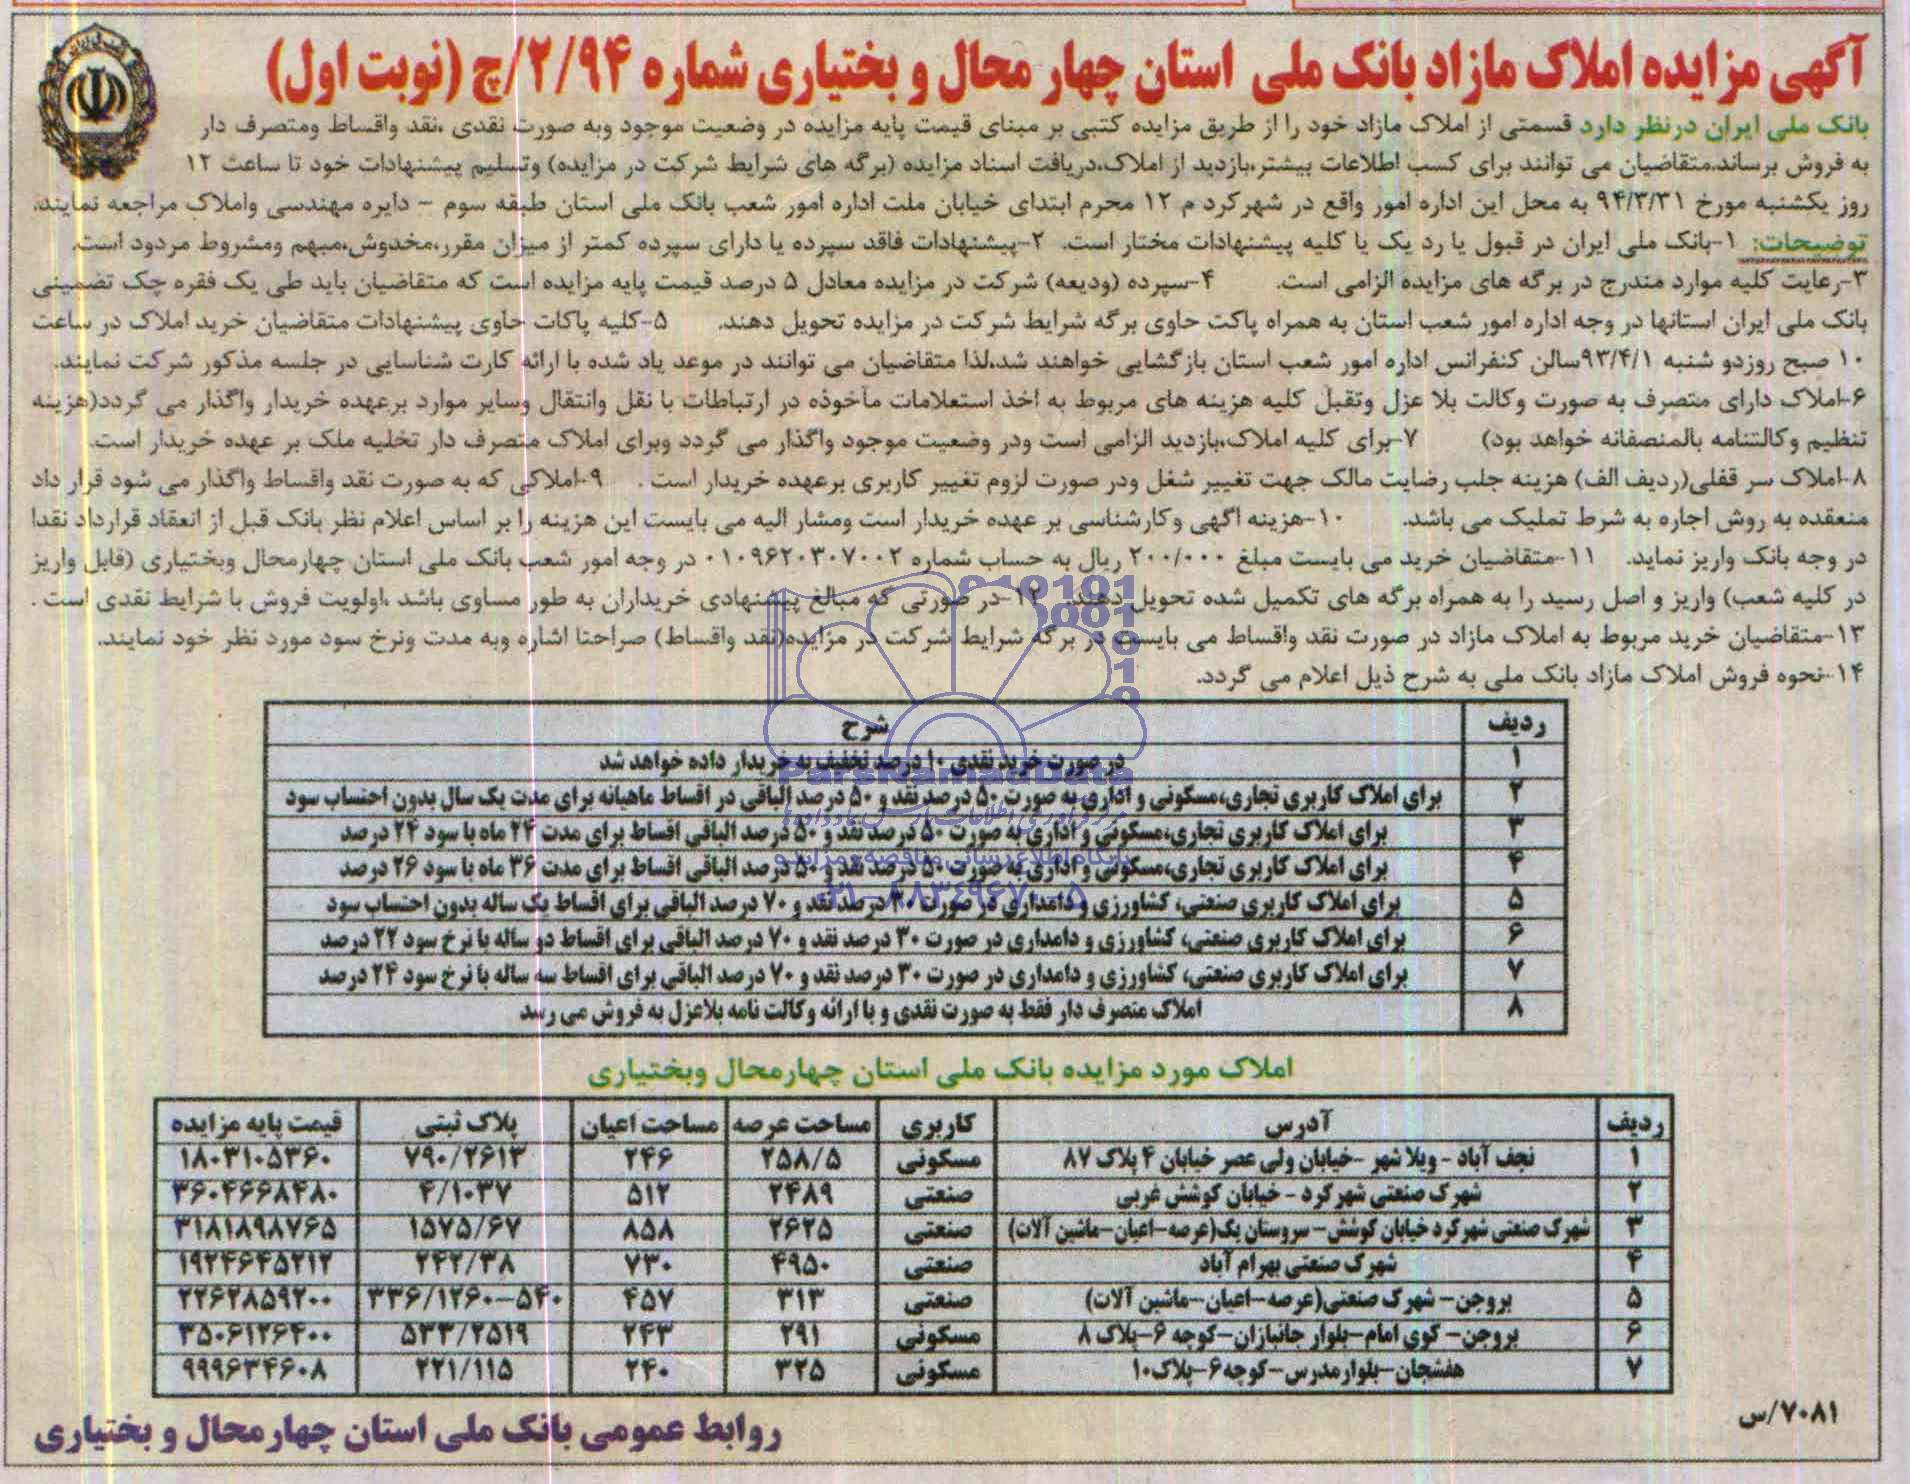 آگهی مزایده املاک مازاد بانک ملی استان چهار محال و بختیاری شماره ۲/۹۴/چ (نوبت اول)
بانک ملی ایران درنظر دارد قسمتی از املاک مازاد خود را از طریق مزایده کتبی بر مبنای قیمت پایه مزایده در وضعیت موجود وبه صورت نقدی ،نقد واقساط ومتصرف دار
به فروش برساند.متقاضیان می توانند برای کسب اطلاعات بیشتر،بازدید از املاک،دریافت اسناد مزایده (برگه های شرایط شرکت در مزایده) وتسلیم پیشنهادات خود تا ساعت ۱۲
روز یکشنبه مورخ ۹۴/۳/۳۱ به محل این اداره امور واقع در شهرکرد م ۱۲ محرم ابتدای خیابان ملت اداره امور شعب بانک ملی استان طبقه سوم – دایره مهندسی واملاک مراجعه نمایند.
توضیحات: ۱-بانک ملی ایران در قبول یا رد یک یا کلیه پیشنهادات مختار است. ۲-پیشنهادات فاقد سپرده یا دارای سپرده کمتر از میزان مقرر،مخدوش،مبهم ومشروط مردود است.
۳-رعایت کلیه موارد مندرج در برگه های مزایده الزامی است. ۴-سپرده (ودیعه) شرکت در مزایده معادل ۵ درصد قیمت پایه مزایده است که متقاضیان باید طی یک فقره چک تضمینی
بانک ملی ایران استانها در وجه اداره امور شعب استان به همراه پاکت حاوی برگه شرایط شرکت در مزایده تحویل دهند. ۵-کلیه پاکات حاوی پیشنهادات متقاضیان خرید املاک در ساعت
۱۰ صبح روزدو شنبه ۹۳/۴/۱سالن کنفرانس اداره امور شعب استان بازگشایی خواهند شد،لذا متقاضیان می توانند در موعد یاد شده با ارائه کارت شناسایی در جلسه مذکور شرکت نمایند.
۶-املاک دارای متصرف به صورت وکالت بلا عزل وتقبل کلیه هزینه های مربوط به اخذ استعلامات مأخوذه در ارتباطات با نقل وانتقال وسایر موارد برعهده خریدار واگذار می گردد(هزینه
تنظیم وکالتنامه بالمنصفانه خواهد بود) ۷-برای کلیه املاک،بازدید الزامی است ودر وضعیت موجود واگذار می گردد وبرای املاک متصرف دار تخلیه ملک بر عهده خریدار است.
۸-املاک سر قفلی(ردیف الف) هزینه جلب رضایت مالک جهت تغییر شغل ودر صورت لزوم تغییر کاربری برعهده خریدار است . ۹-املاکی که به صورت نقد واقساط واگذار می شود قرار داد
منعقده به روش اجاره به شرط تملیک می باشد. ۱۰-هزینه اگهی وکارشناسی بر عهده خریدار است ومشار الیه می بایست این هزینه را بر اساس اعلام نظر بانک قبل از انعقاد قرارداد نقدا
در وجه بانک واریز نماید. ۱۱-متقاضیان خرید می بایست مبلغ ۲۰۰/۰۰۰ ریال به حساب شماره ۰۱۰۹۶۲۰۳۰۷۰۰۲ در وجه امور شعب بانک ملی استان چهارمحال وبختیاری (قابل واریز
در کلیه شعب) واریز و اصل رسید را به همراه برگه های تکمیل شده تحویل دهند. ۱۲-در صورتی که مبالغ پیشنهادی خریداران به طور مساوی باشد ،اولویت فروش با شرایط نقدی است .
۱۳-متقاضیان خرید مربوط به املاک مازاد در صورت نقد واقساط می بایست در برگه شرایط شرکت در مزایده(نقد واقساط) صراحتا اشاره وبه مدت ونرخ سود مورد نظر خود نمایند.
۱۴-نحوه فروش املاک مازاد بانک ملی به شرح ذیل اعلام می گردد.
ردیف شرح
۱ در صورت خرید نقدی ۱۰ درصد تخفیف به خریدار داده خواهد شد
۲ برای املاک کاربری تجاری،مسکونی و اداری به صورت ۵۰ درصد نقد و ۵۰ درصد الباقی در اقساط ماهیانه برای مدت یک سال بدون احتساب سود
۳ برای املاک کاربری تجاری،مسکونی و اداری به صورت ۵۰ درصد نقد و ۵۰ درصد الباقی اقساط برای مدت ۲۴ ماه با سود ۲۴ درصد
۴ برای املاک کاربری تجاری،مسکونی و اداری به صورت ۵۰ درصد نقد و ۵۰ درصد الباقی اقساط برای مدت ۳۶ ماه با سود ۲۶ درصد
۵ برای املاک کاربری صنعتی، کشاورزی و دامداری در صورت ۳۰ درصد نقد و ۷۰ درصد الباقی برای اقساط یک ساله بدون احتساب سود
۶ برای املاک کاربری صنعتی، کشاورزی و دامداری در صورت ۳۰ درصد نقد و ۷۰ درصد الباقی برای اقساط دو ساله با نرخ سود ۲۲ درصد
۷ برای املاک کاربری صنعتی، کشاورزی و دامداری در صورت ۳۰ درصد نقد و ۷۰ درصد الباقی برای اقساط سه ساله با نرخ سود ۲۴ درصد
۸ املاک متصرف دار فقط به صورت نقدی و با ارائه وکالت نامه بلاعزل به فروش می رسد
ParsNamadData
پایگاه اطلاع رسانی مناقصه و مزایده
املاک مورد مزایده بانک ملی استان چهارمحال وبختیاری
ردیف آدرس کاربری مساحت عرصه مساحت اعیان پلاک ثبتی قیمت پایه مزایده
۱ نجف آباد - ویلا شهر -خیابان ولی عصر خیابان ۴ پلاک ۸۷ مسکونی ۲۵۸/۵ ۲۴۶ ۷۹۰/۲۶۱۳ ۱۸۰۳۱۰۵۳۶۰
۲ شهرک صنعتی شهرکرد - خیابان کوشش غربی صنعتی ۲۴۸۹ ۵۱۲ ۴/۱۰۳۷ ۳۶۰۴۶۶۸۴۸۰
۳ شهرک صنعتی شهرکرد خیابان کوشش- سروستان یک(عرصه-اعیان-ماشین آلات) صنعتی ۲۶۲۵ ۸۵۸ ۱۵۷۵/۶۷ ۳۱۸۱۸۹۸۷۶۵
۴ شهرک صنعتی بهرام آباد صنعتی ۴۹۵۰ ۷۳۰ ۲۴۲/۳۸ ۱۹۲۴۶۴۵۲۱۲
۵ بروجن- شهرک صنعتی(عرصه-اعیان-ماشین آلات) صنعتی ۳۱۳ ۴۵۷ ۳۳۶/۱۲۶۰-۵۴۰ ۲۲۶۲۸۵۹۲۰۰
۶ بروجن- کوی امام-بلوار جانبازان-کوچه ۶-پلاک ۸ مسکونی ۲۹۱ ۲۴۳ ۵۳۳/۲۵۱۹ ۳۵۰۶۱۲۶۴۰۰
۷ هفشجان-بلوارمدرس-کوچه۶-پلاک۱۰ مسکونی ۳۲۵ ۲۴۰ ۲۲۱/۱۱۵ ۹۹۹۶۳۴۶۰۸
۷۰۸۱/س
روابط عمومی بانک ملی استان چهارمحال و بختیاری